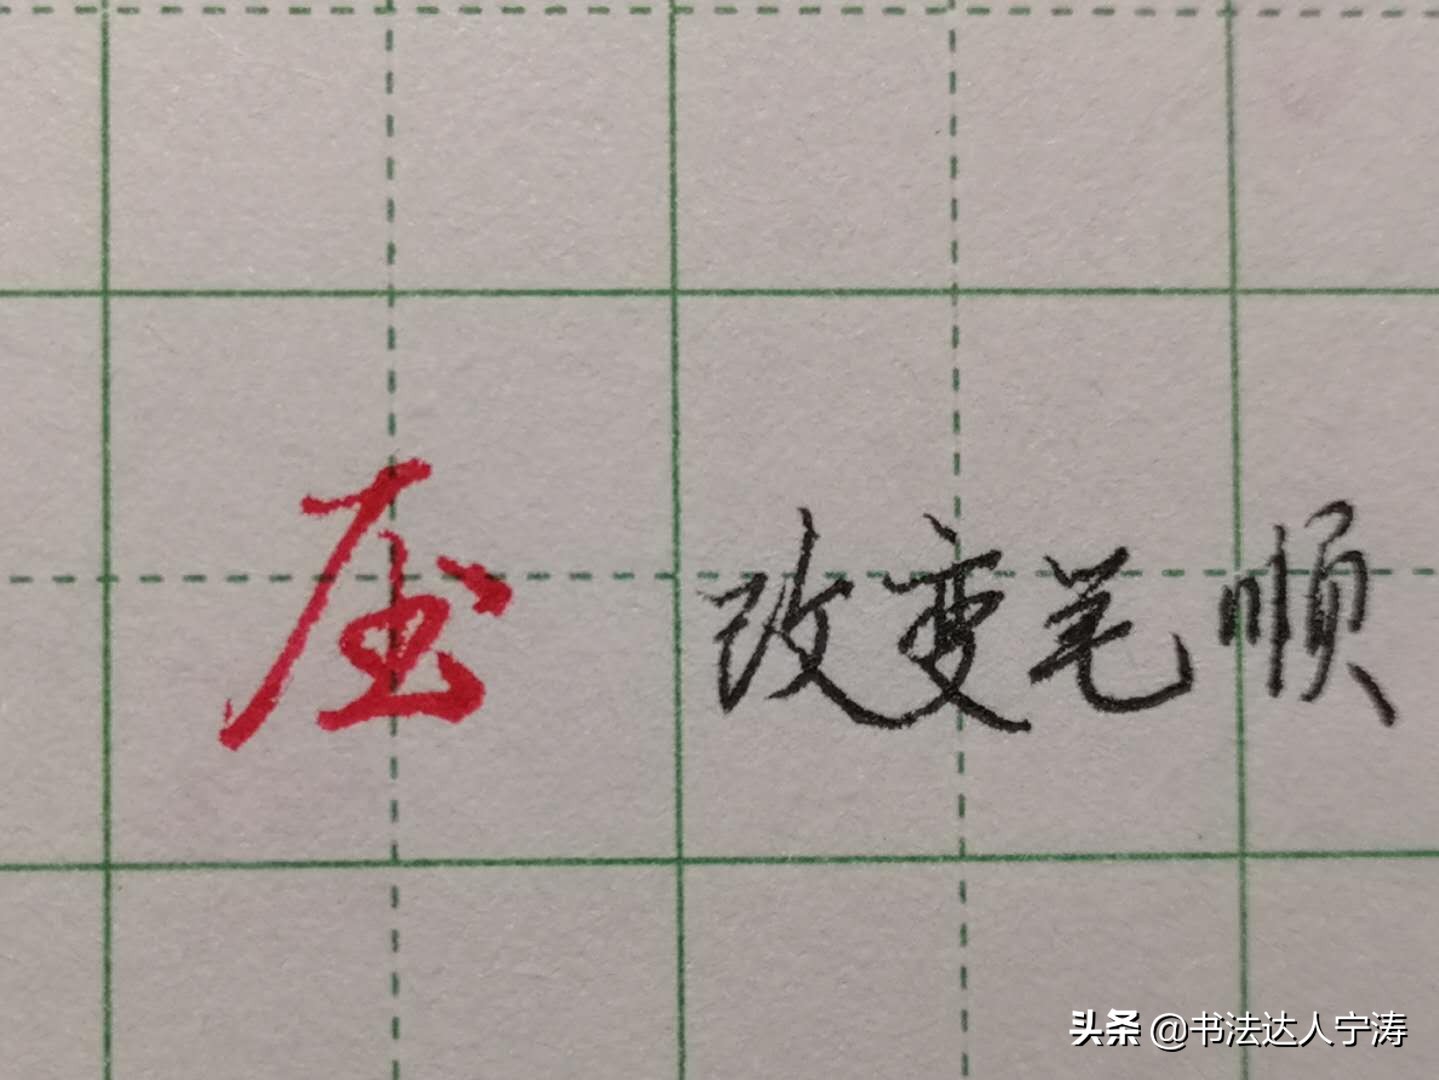 压 改变笔顺
头条 @书法达人宁涛